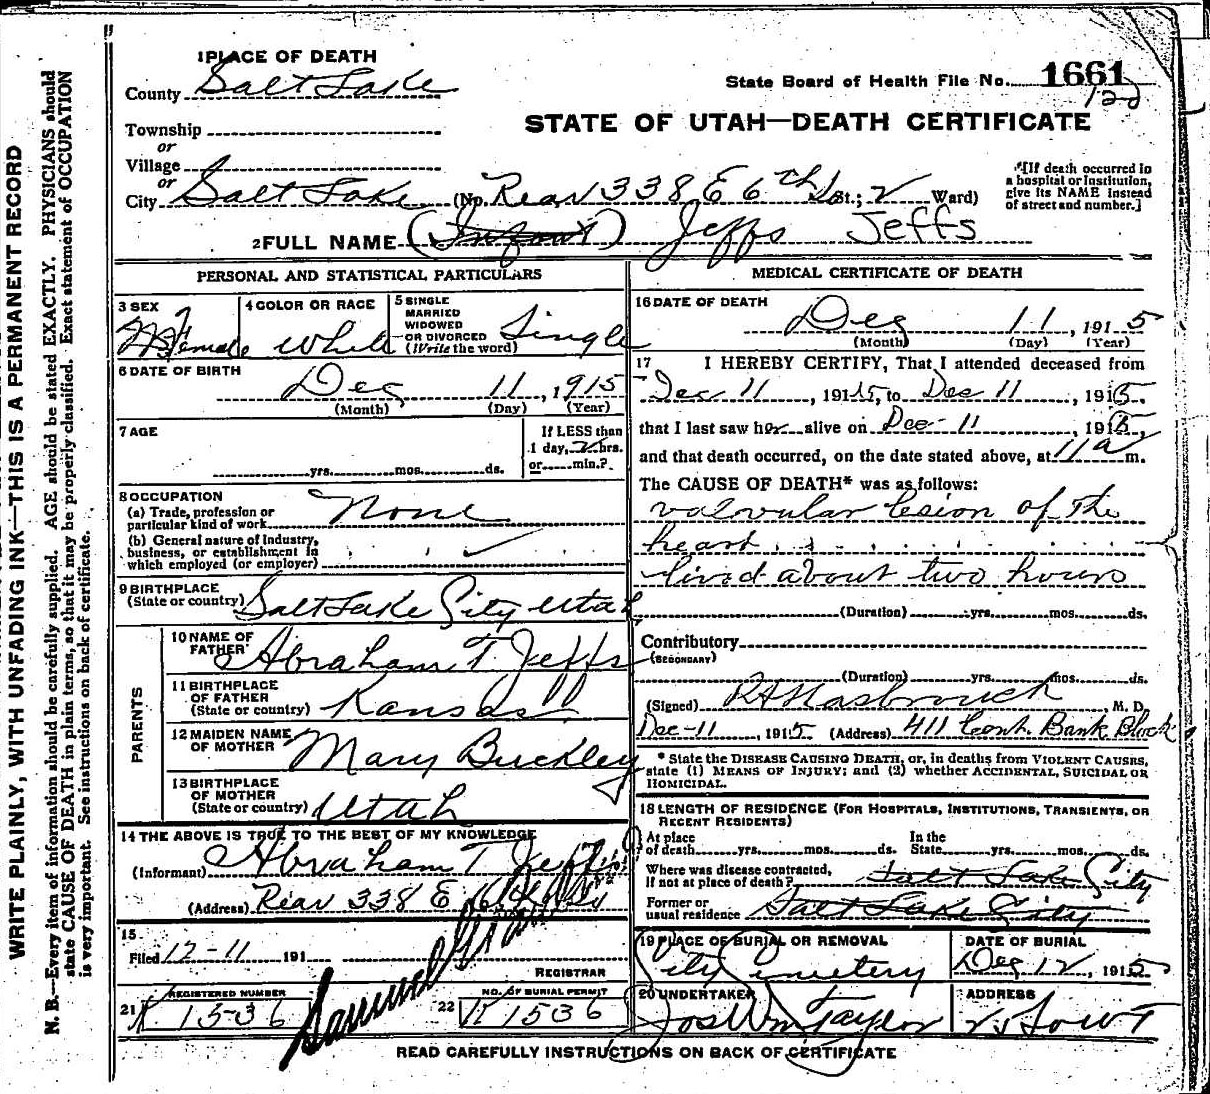 WRITE PLAINLY, WITH UNFADING INK—THIS IS A PERMANENT RECORD
N. B.—Every item of information should be carefully supplied. AGE should be stated EXACTLY. PHYSICIANS should
state CAUSE OF DEATH in plain terms, so that it may be properly classified. Exact statement of OCCUPATION
is very important. See instructions on back of certificate.
1 PLACE OF DEATH
County Salt Lake
Township
or
Village
or
City Salt Lake (No. Rear 338 E 6th So St.; 2 Ward)
State Board of Health File No. 1661
122
STATE OF UTAH—DEATH CERTIFICATE
*[If death occurred in
a hospital or institution,
give its NAME instead
of street and number.]
2 FULL NAME (Infant) Jeffs Jeffs
PERSONAL AND STATISTICAL PARTICULARS
3 SEX
Female
4 COLOR OR RACE
White
5 SINGLE
MARRIED
WIDOWED
OR DIVORCED
(Write the word)
Single
6 DATE OF BIRTH
Dec 11, 1915
(Month) (Day) (Year)
7 AGE
yrs. mos. ds.
If LESS than
1 day, 2 hrs.
or min.?
8 OCCUPATION
(a) Trade, profession or
particular kind of work None
(b) General nature of industry,
business, or establishment in
which employed (or employer)
9 BIRTHPLACE
(State or country) Salt Lake City Utah
PARENTS
10 NAME OF
FATHER Abraham T. Jeffs
11 BIRTHPLACE
OF FATHER
(State or country) Kansas
12 MAIDEN NAME
OF MOTHER Mary Buckley
13 BIRTHPLACE
OF MOTHER
(State or country) Utah
14 THE ABOVE IS TRUE TO THE BEST OF MY KNOWLEDGE
(Informant) Abraham T. Jeffs
(Address) Rear 338 E 6th So
15
Filed 12-11 191
Samuel
REGISTRAR
21 REGISTERED NUMBER
K 1536
22 NO. OF BURIAL PERMIT
K 1536
MEDICAL CERTIFICATE OF DEATH
16 DATE OF DEATH
Dec 11, 1915
(Month) (Day) (Year)
17 I HEREBY CERTIFY, That I attended deceased from
Dec 11, 1915, to Dec 11, 1915,
that I last saw her alive on Dec-11, 1915,
and that death occurred, on the date stated above, at 11 a m.
The CAUSE OF DEATH* was as follows:
valvular lesion of the
heart
lived about two hours
(Duration) yrs. mos. ds.
Contributory
(SECONDARY)
(Duration) yrs. mos. ds.
(Signed) R A Hasbrouck, M. D.
Dec-11, 1915. (Address) 411 Cont. Bank Block
* State the DISEASE CAUSING DEATH, or, in deaths from VIOLENT CAUSES,
state (1) MEANS OF INJURY; and (2) whether ACCIDENTAL, SUICIDAL OR
HOMICIDAL.
18 LENGTH OF RESIDENCE (FOR HOSPITALS, INSTITUTIONS, TRANSIENTS, OR
RECENT RESIDENTS)
At place
of death yrs. mos. ds.
In the
State yrs. mos. ds.
Where was disease contracted,
if not at place of death? Salt Lake City
Former or
usual residence Salt Lake City
19 PLACE OF BURIAL OR REMOVAL
City Cemetery
DATE OF BURIAL
Dec 12, 1915
20 UNDERTAKER
Jos Wm Taylor
ADDRESS
25 So W T
READ CAREFULLY INSTRUCTIONS ON BACK OF CERTIFICATE